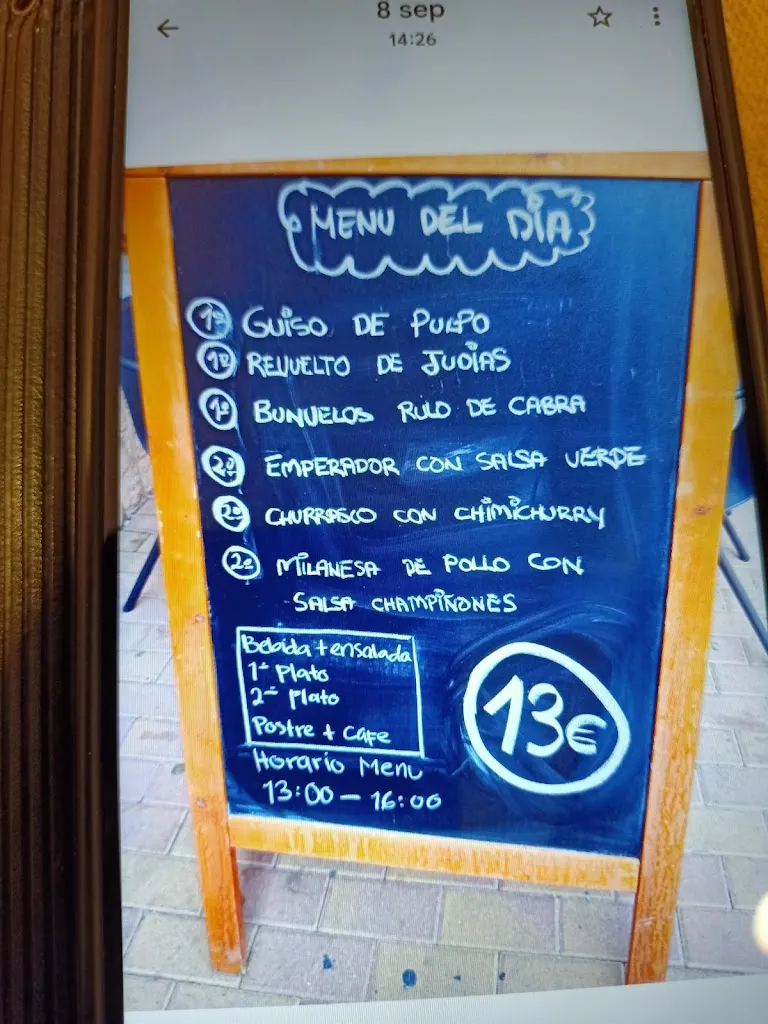 8 sep
14:26
MENU DEL DÍA
1º GUISO DE PULPO
1º REVUELTO DE JUDIAS
1º BUNUELOS RULO DE CABRA
2º EMPERADOR CON SALSA VERDE
2º CHURRASCO CON CHIMICHURRY
2º MILANESA DE POLLO CON
SALSA CHAMPIÑONES
Bebida + ensalada
1º Plato
2º Plato
Postre + Cafe
13€
Horario Menu
13:00 — 16:00